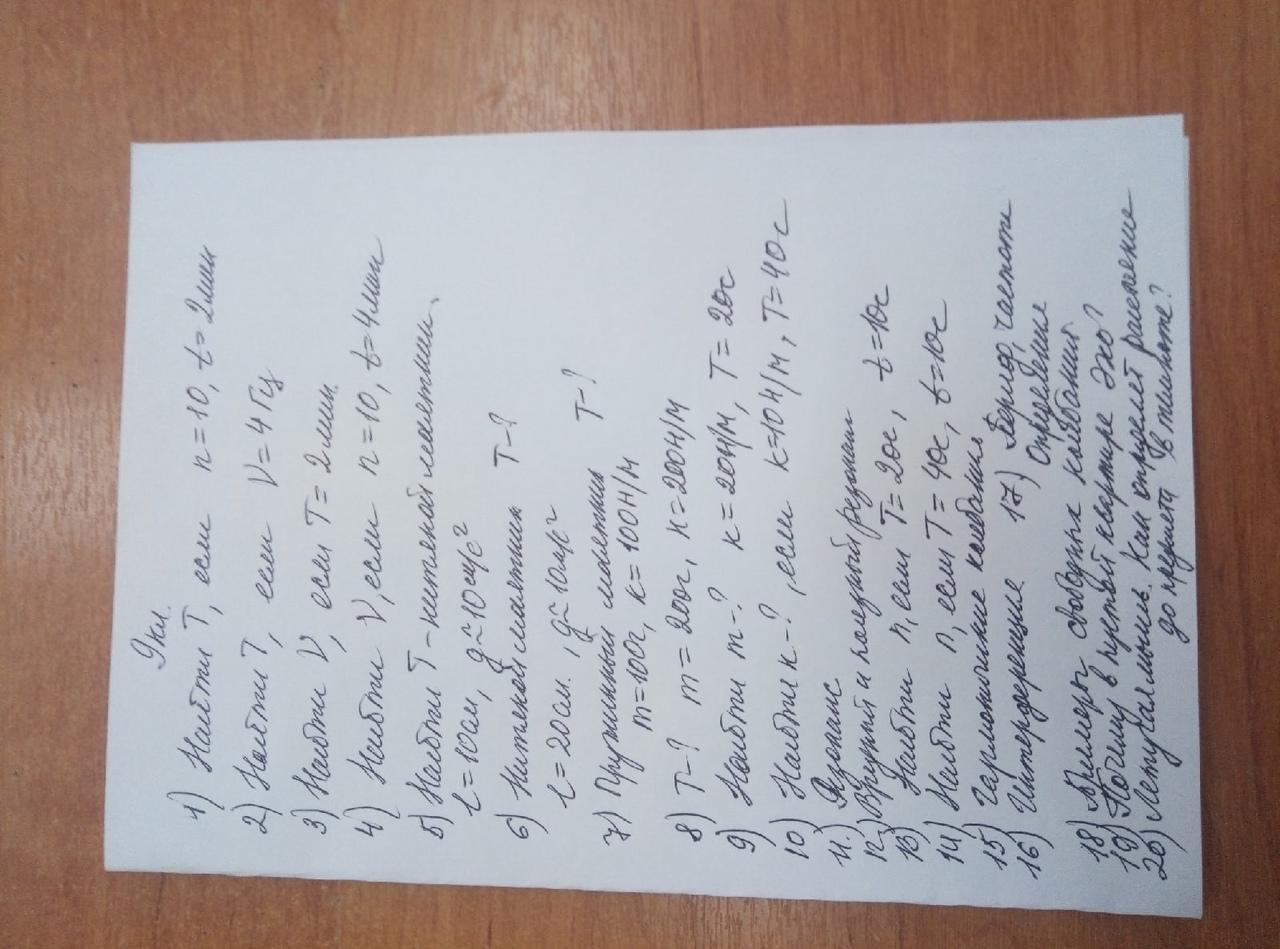 9 кл.
1) Найти T, если n=10, t=2мин
2) Найти T, если ν=4 Гц
3) Найти ν, если T=2мин.
4) Найти ν, если n=10, t=4мин
5) Найти T-нитяной маятник.
l=10см, g≈10м/с²
6) Нитяной маятник T-?
l=20см., g≈10м/с²
7) Пружинный маятник T-?
m=10г, к=100Н/м
8) T-? m=200г, к=200Н/м
9) Найти m-? к=20Н/м, T=20с
10) Найти к-?, если к=10Н/м, T=40с
11.) Резонанс
12) Вредный и полезный резонанс
13) Найти n, если T=20с, t=10с
14) Найти n, если T=40с, t=10с
15) Гармонические колебания
16) Интерференция 17) Период, частота
определение
18) Примеры свободных колебаний
19) Почему в пустой квартире эхо?
20) Летучая мышь. Как определяет расстояние
до предмета в темноте?